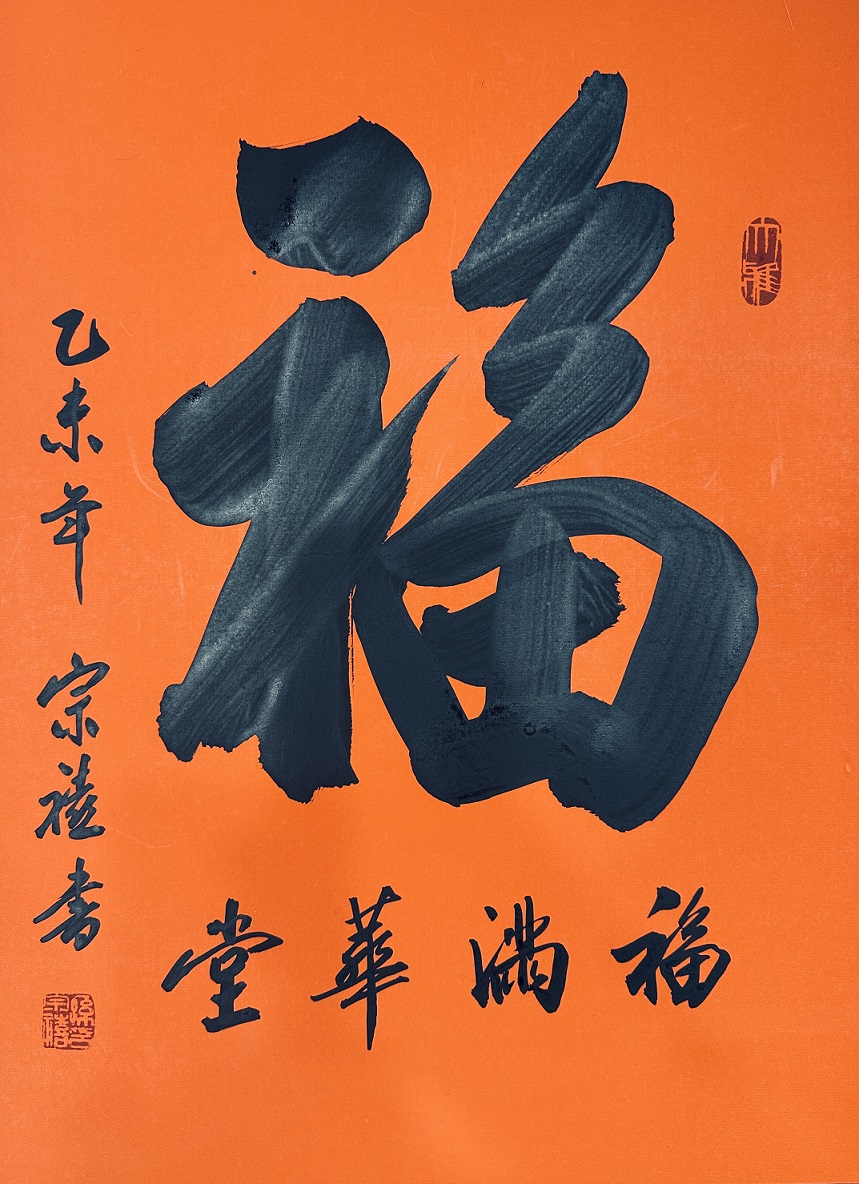 福
福滿華堂
乙未年 宗禧書